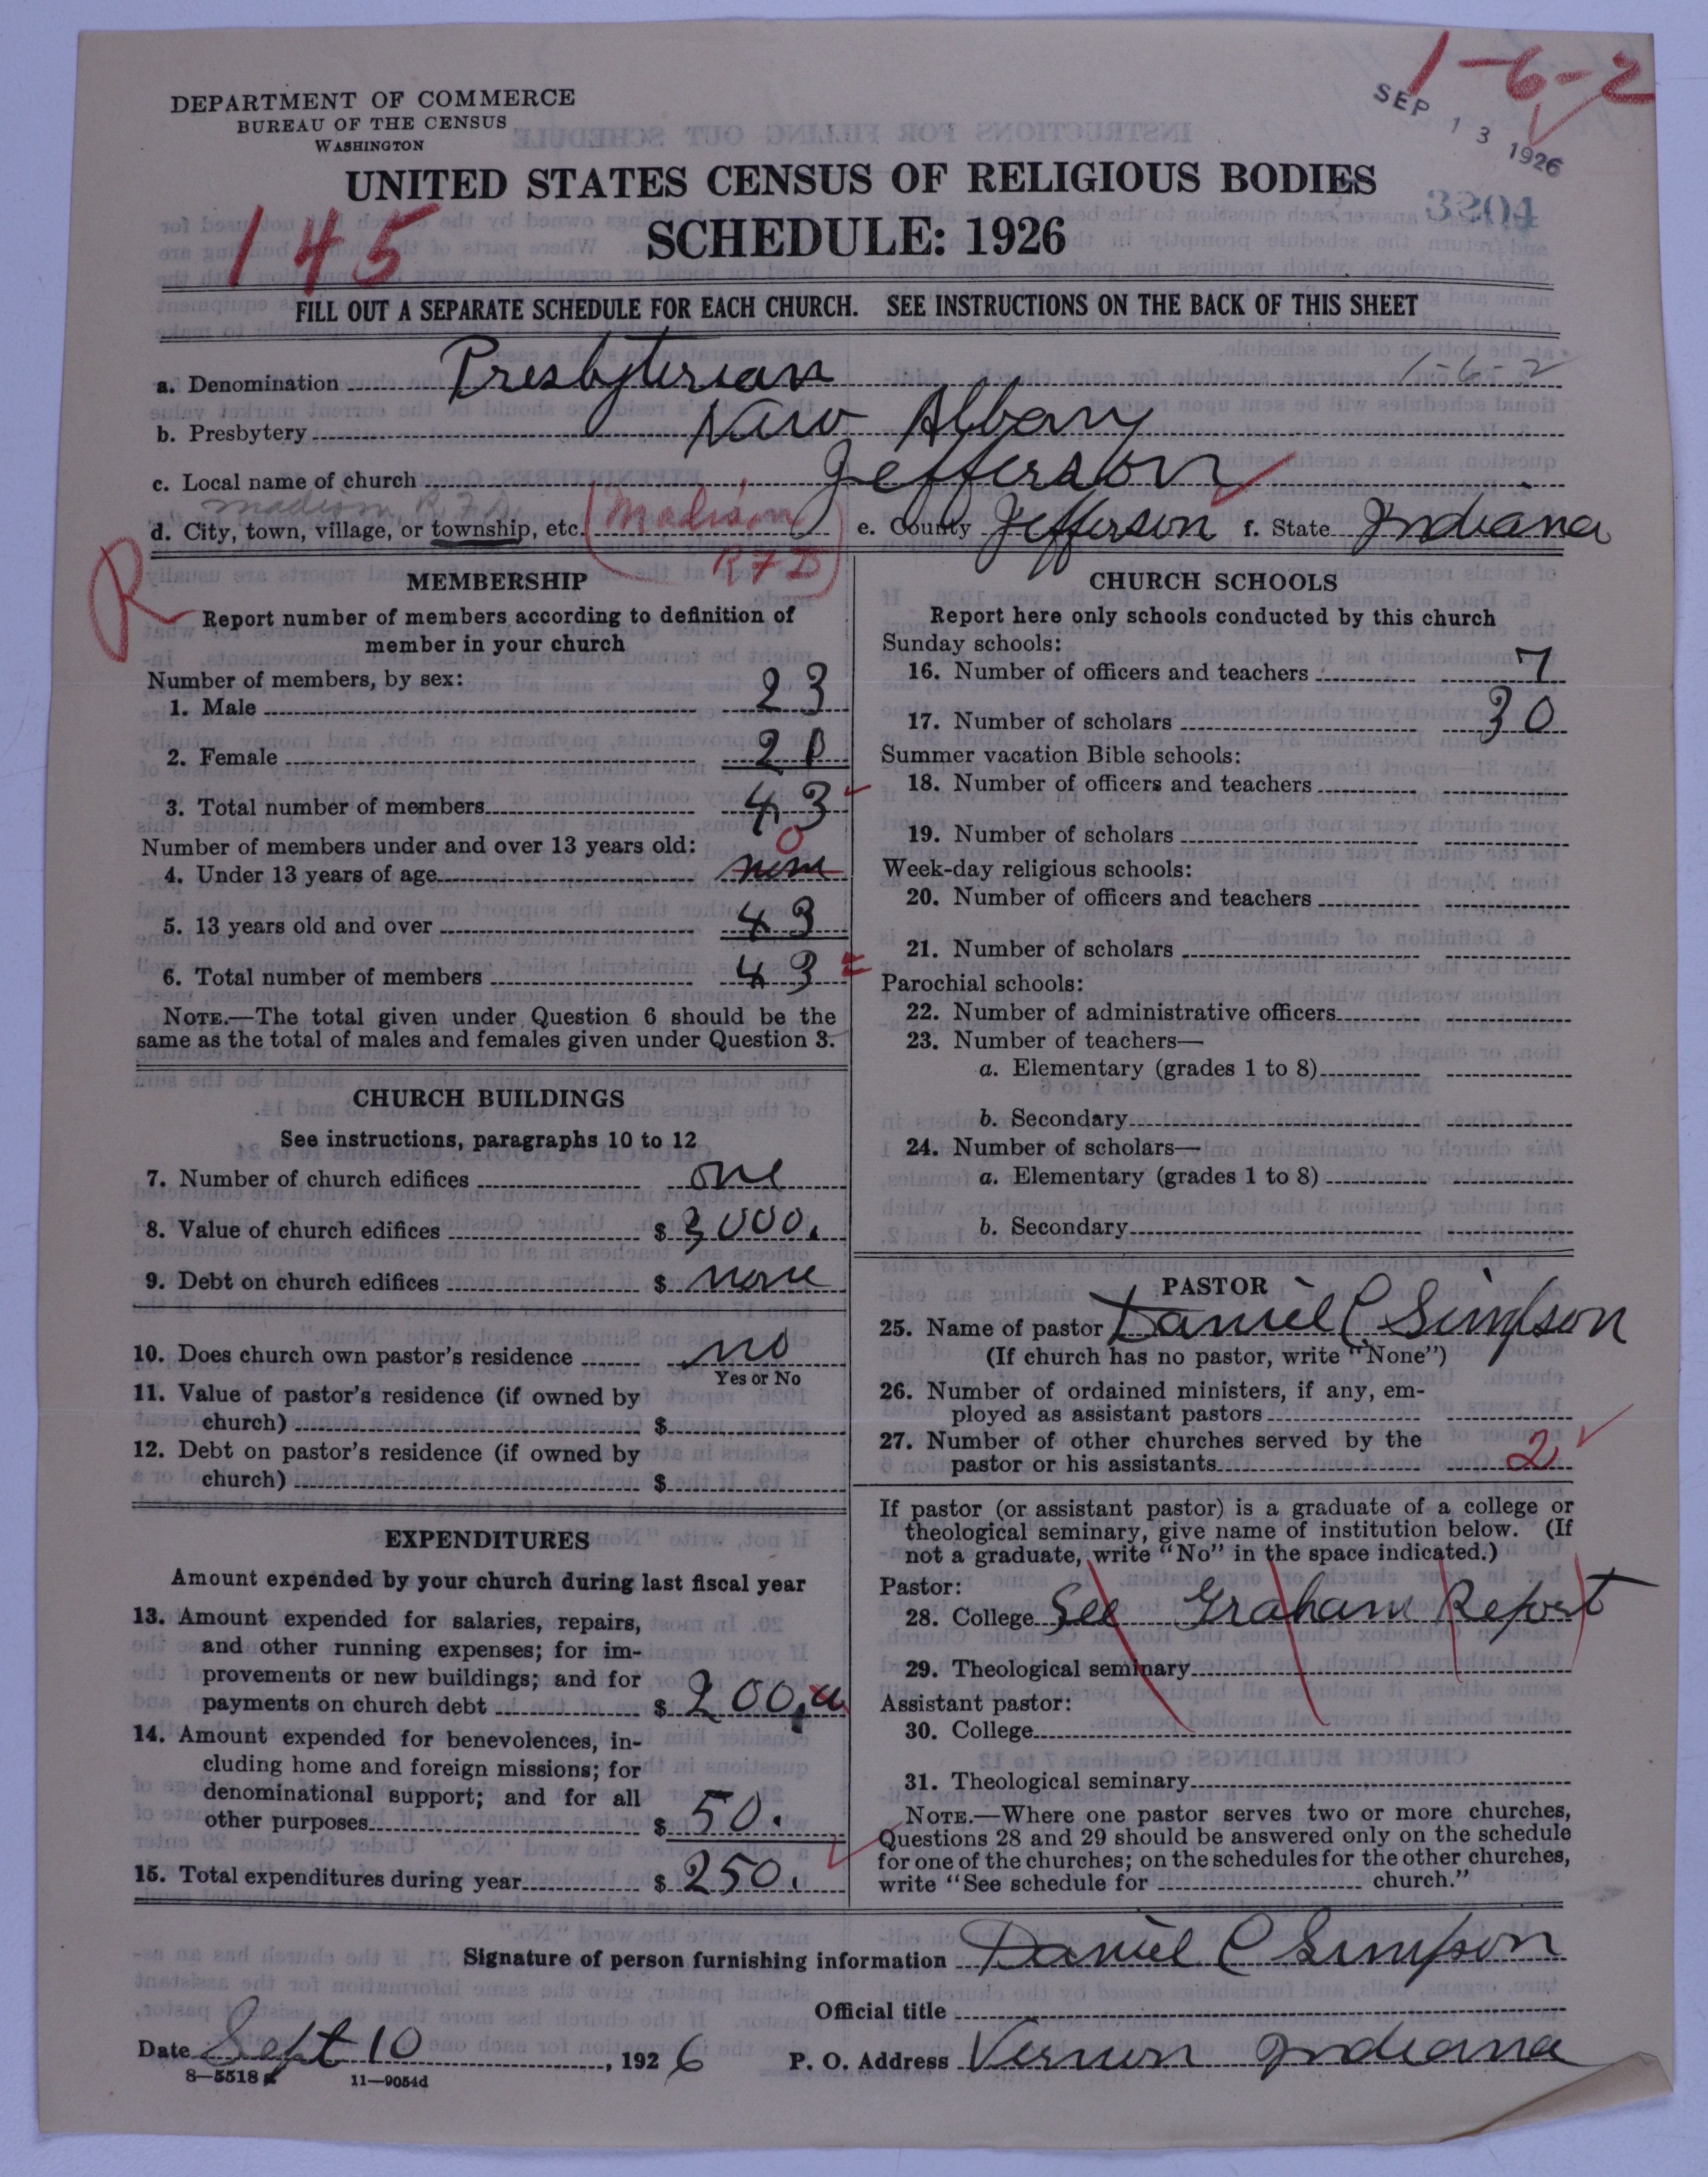 DEPARTMENT OF COMMERCE
BUREAU OF THE CENSUS
WASHINGTON
1-6-2
SEP 13 1926
UNITED STATES CENSUS OF RELIGIOUS BODIES
3204
145
SCHEDULE: 1926
FILL OUT A SEPARATE SCHEDULE FOR EACH CHURCH. SEE INSTRUCTIONS ON THE BACK OF THIS SHEET
a. Denomination Presbyterian 1-6-2
b. Presbytery New Albany
c. Local name of church Jefferson
madison, R.F.D.
d. City, town, village, or township, etc. (Madison R F D) e. County Jefferson f. State Indiana
R
MEMBERSHIP
Report number of members according to definition of
member in your church
Number of members, by sex:
1. Male 23
2. Female 20
3. Total number of members 43
Number of members under and over 13 years old:
0
4. Under 13 years of age none
5. 13 years old and over 43
6. Total number of members 43
NOTE.—The total given under Question 6 should be the
same as the total of males and females given under Question 3.
CHURCH BUILDINGS
See instructions, paragraphs 10 to 12
7. Number of church edifices one
8. Value of church edifices $ 3000.
9. Debt on church edifices $ none
10. Does church own pastor's residence no
Yes or No
11. Value of pastor's residence (if owned by
church) $
12. Debt on pastor's residence (if owned by
church) $
EXPENDITURES
Amount expended by your church during last fiscal year
13. Amount expended for salaries, repairs,
and other running expenses; for im-
provements or new buildings; and for
payments on church debt $ 200.
14. Amount expended for benevolences, in-
cluding home and foreign missions; for
denominational support; and for all
other purposes $ 50.
15. Total expenditures during year $ 250.
CHURCH SCHOOLS
Report here only schools conducted by this church
Sunday schools:
16. Number of officers and teachers 7
17. Number of scholars 30
Summer vacation Bible schools:
18. Number of officers and teachers
19. Number of scholars
Week-day religious schools:
20. Number of officers and teachers
21. Number of scholars
Parochial schools:
22. Number of administrative officers
23. Number of teachers—
a. Elementary (grades 1 to 8)
b. Secondary
24. Number of scholars—
a. Elementary (grades 1 to 8)
b. Secondary
PASTOR
25. Name of pastor Daniel C Simpson
(If church has no pastor, write "None")
26. Number of ordained ministers, if any, em-
ployed as assistant pastors
27. Number of other churches served by the
pastor or his assistants 2
If pastor (or assistant pastor) is a graduate of a college or
theological seminary, give name of institution below. (If
not a graduate, write "No" in the space indicated.)
Pastor:
28. College See Graham Report
29. Theological seminary
Assistant pastor:
30. College
31. Theological seminary
NOTE.—Where one pastor serves two or more churches,
Questions 28 and 29 should be answered only on the schedule
for one of the churches; on the schedules for the other churches,
write "See schedule for church."
Signature of person furnishing information Daniel C Simpson
Official title
Date Sept 10, 1926 P. O. Address Vernon Indiana
8—5518 11—9054d